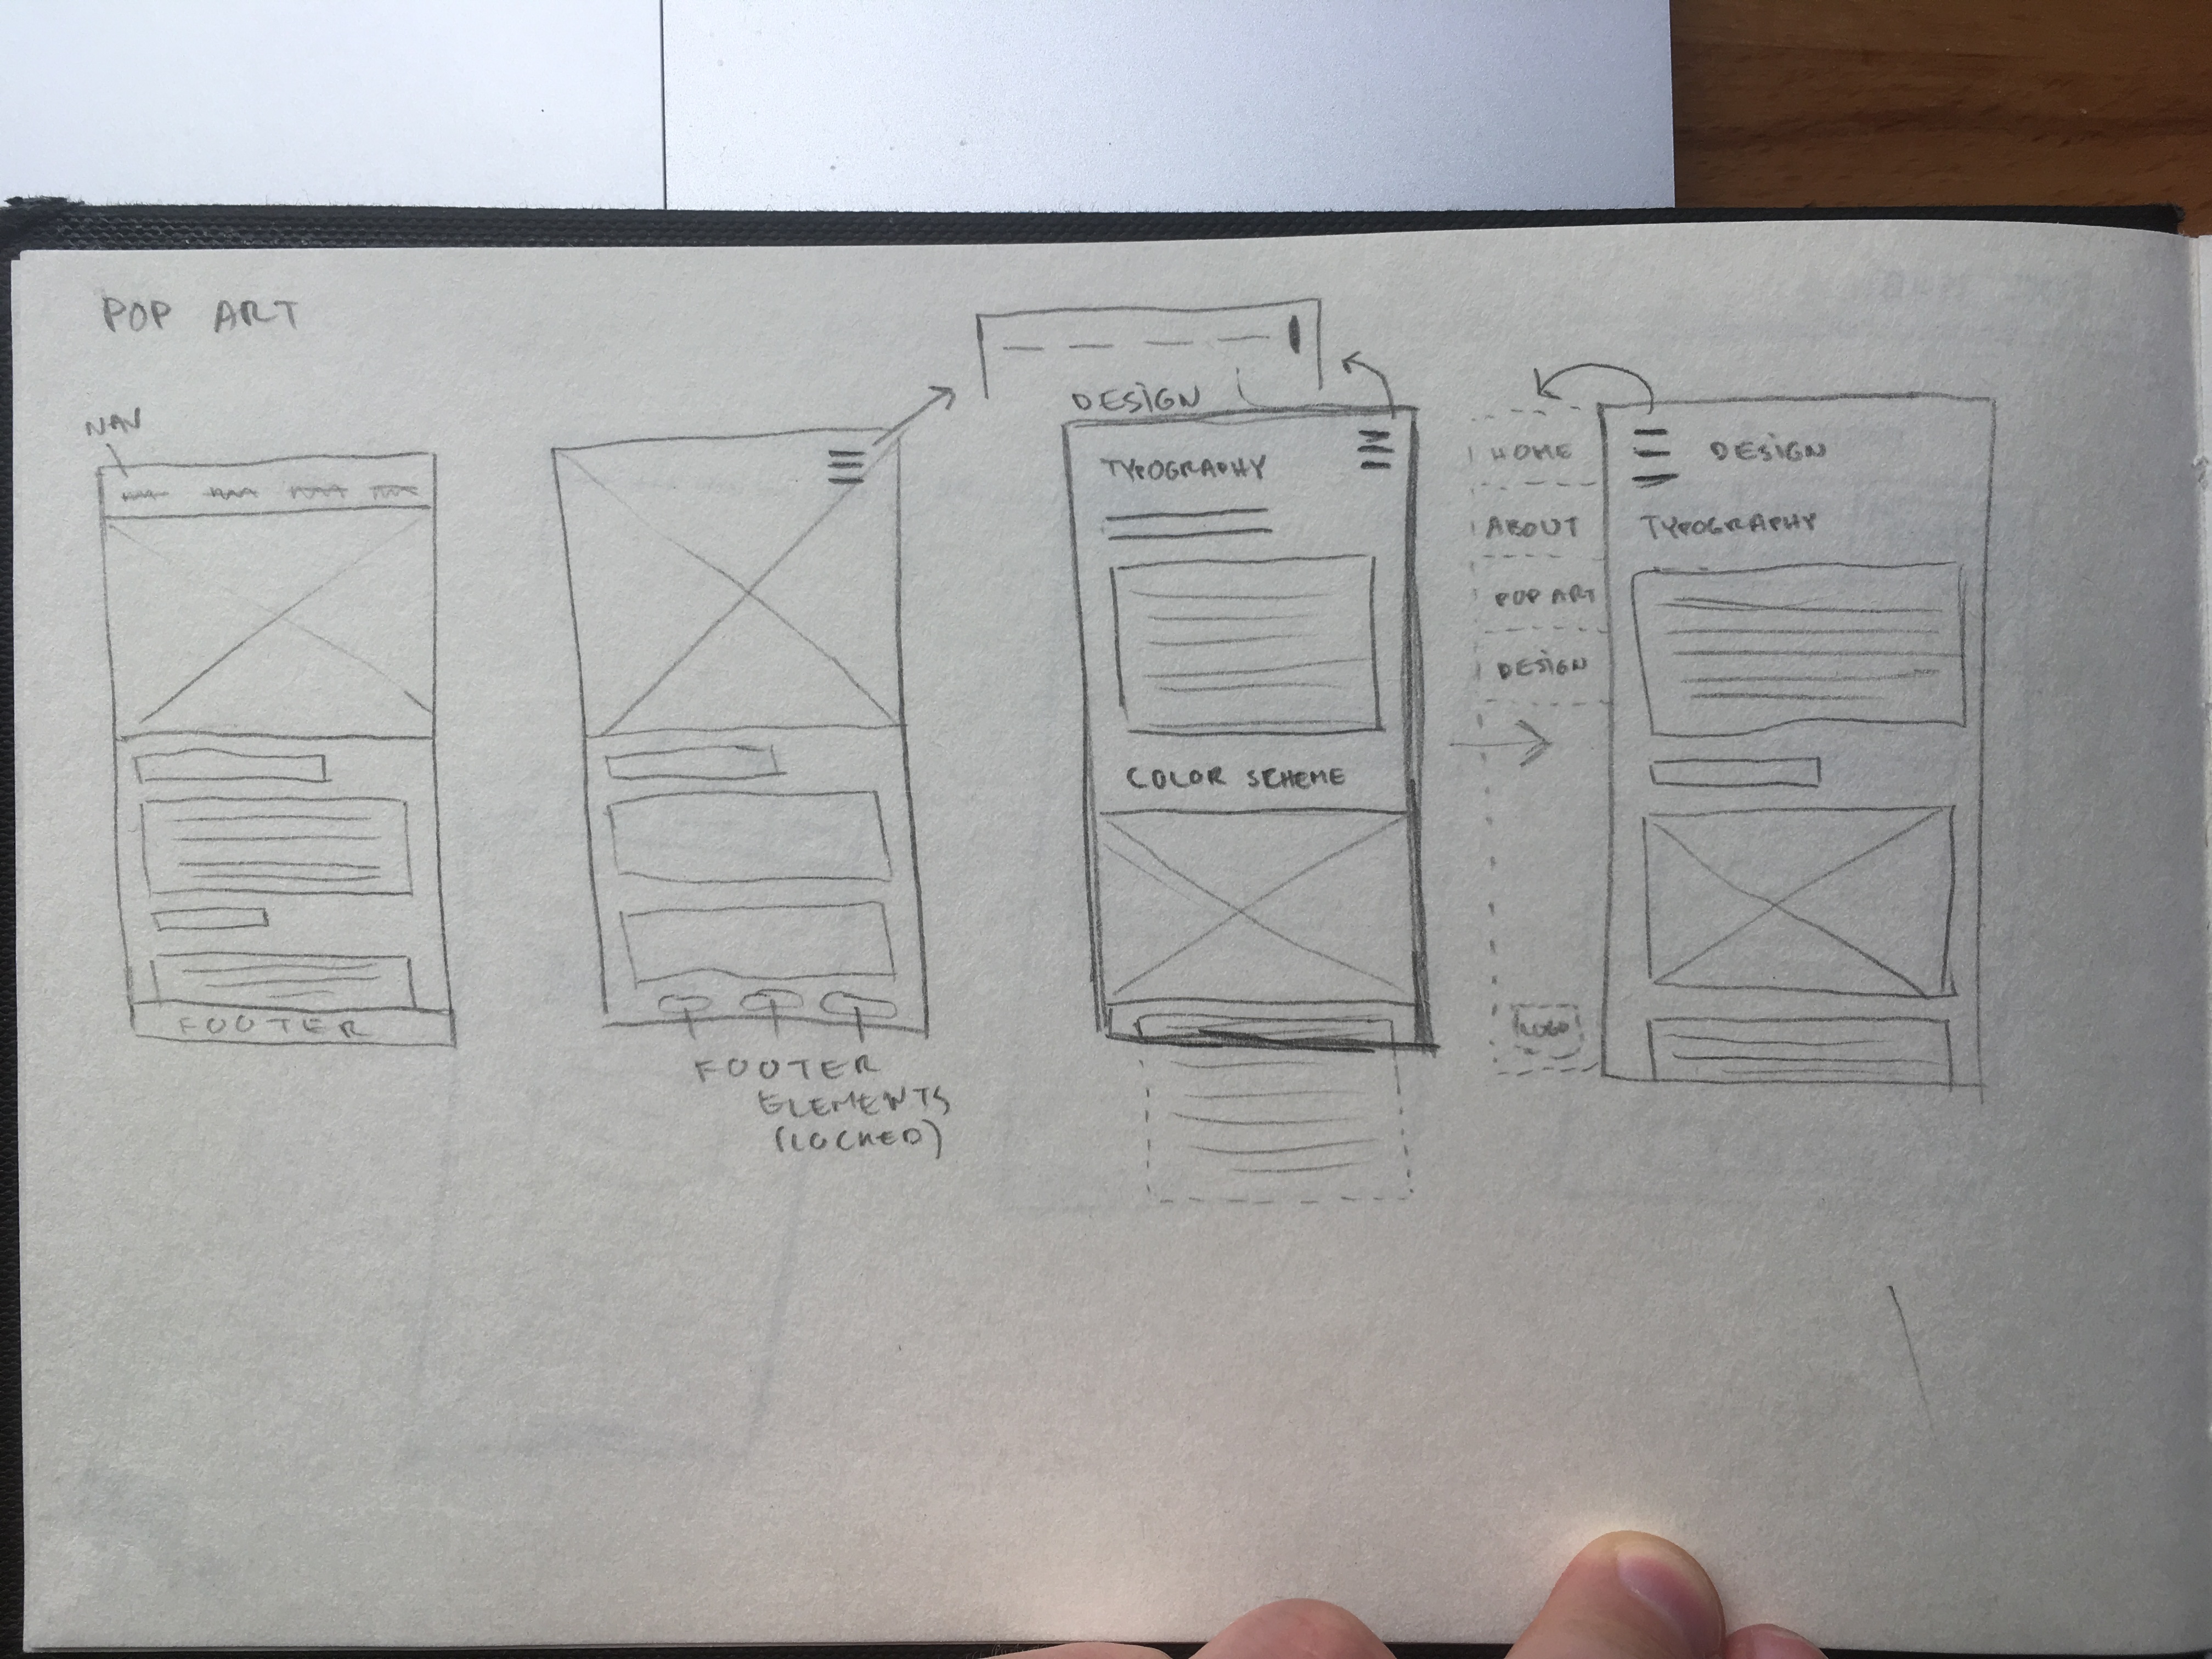 POP ART
NAV
FOOTER
FOOTER
ELEMENTS
(LOCKED)
DESIGN
TYPOGRAPHY
COLOR SCHEME
HOME
ABOUT
POP ART
DESIGN
LOGO
DESIGN
TYPOGRAPHY